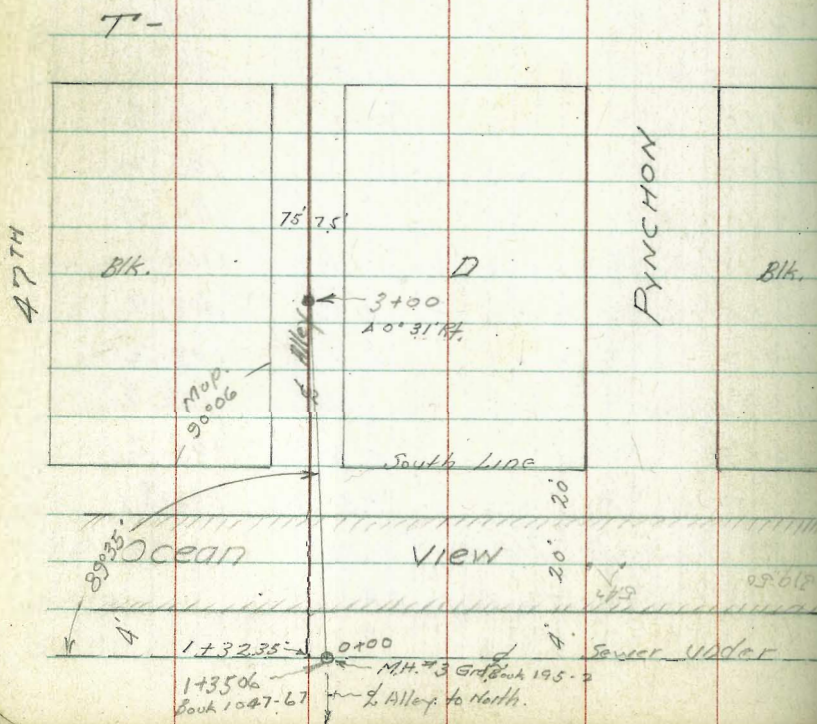 T-
47TH
Blk.
75' 75'
D
PYNCHON
Blk.
3+00
Δ 0° 31' Rt.
℄ Alley
Map.
90°06
South Line
20'
89°35'
Ocean View
20'
4'
4'
1+32.35
0+00
Sewer under
M.H. #3 Grd. Book 195-2
1+35.06
Book 1047-67
℄ Alley to North.